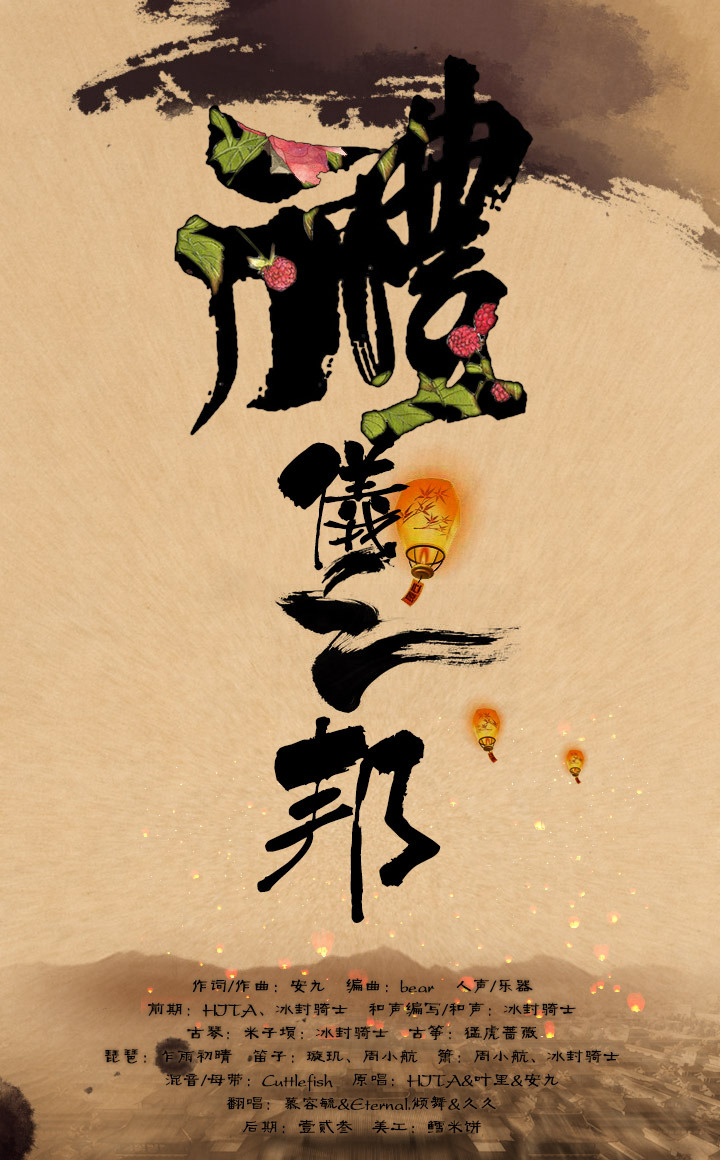 禮
儀
之
邦
作词/作曲：安九 编曲：bear 人声/乐器
前期：HITA、冰封骑士 和声编写/和声：冰封骑士
古琴：米子埙：冰封骑士 古筝：猛虎蔷薇
琵琶：乍雨初晴 笛子：璇玑、周小航 箫：周小航、冰封骑士
混音/母带：Cuttlefish 原唱：HITA&叶里&安九
翻唱：慕容毓&Eternal.倾舞&久久
后期：壹贰叁 美工：鳕米饼